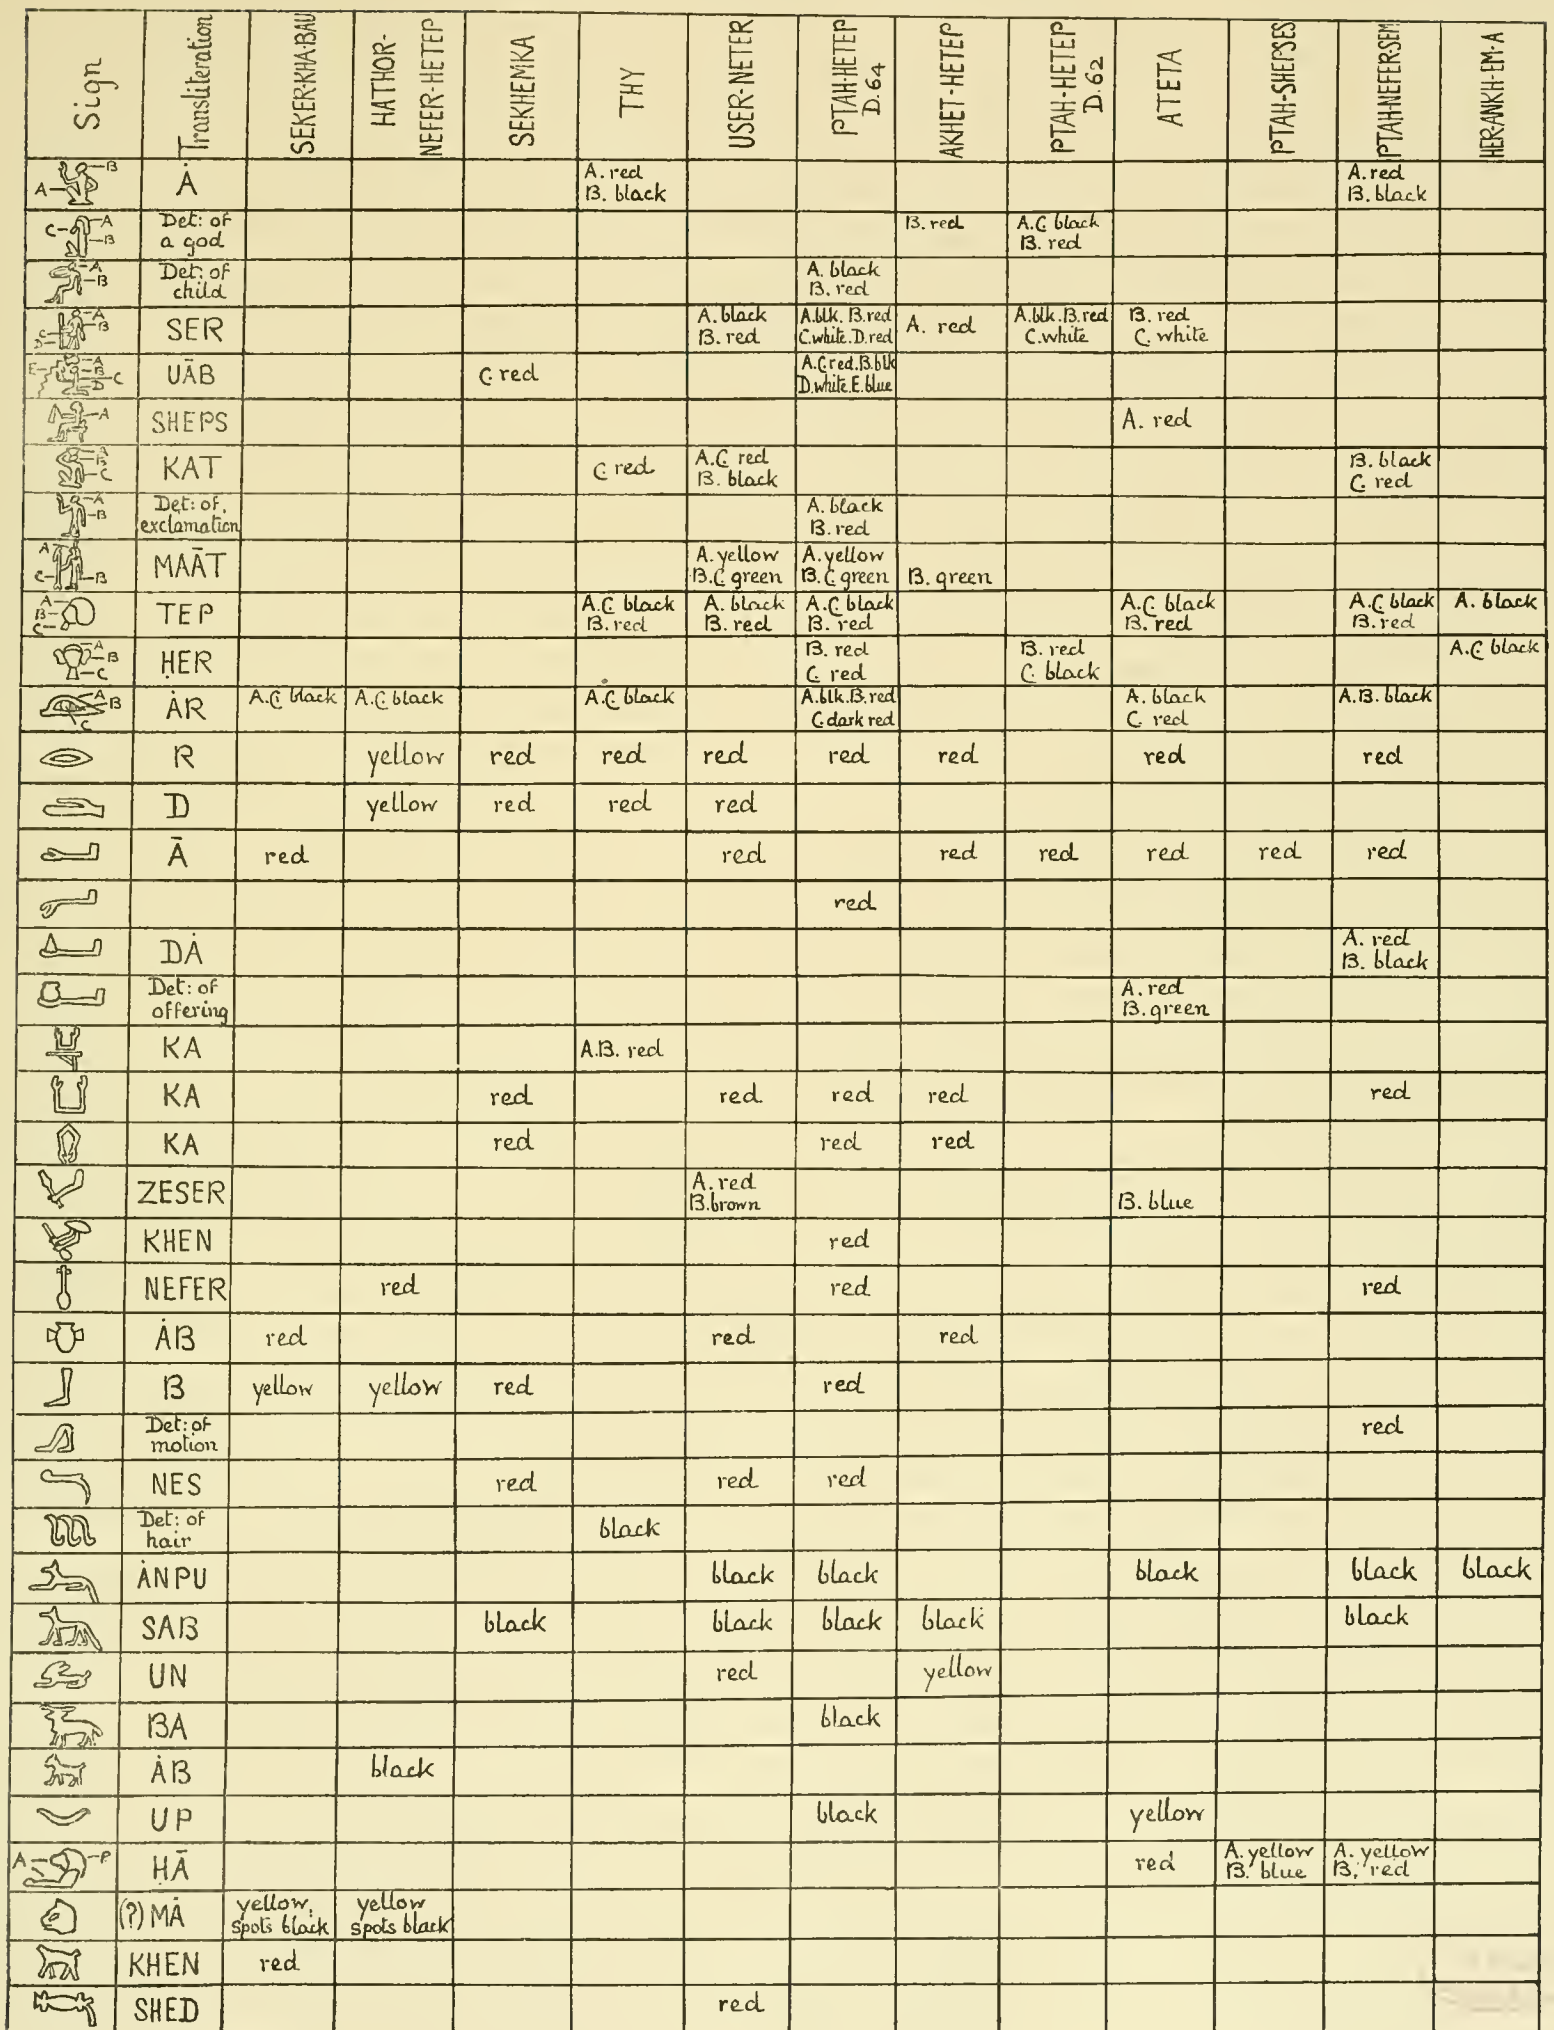 Sign Transliteration SEKER-KHA-BAU HATHOR-NEFER-HETEP SEKHEMKA THY USER-NETER PTAH-HETEP D.64 AKHET-HETEP PTAH-HETEP D.62 ATETA PTAH-SHEPSES PTAH-NEFER-SEM HER-ANKH-EM-A
A B Ȧ A. red B. black A. red B. black
C A B Det: of a god B. red A.C. black B. red
A B Det: of child A. black B. red
A B C D SER A. black B. red A.blk. B.red C.white. D.red A. red A.blk. B.red C.white B. red C. white
E A B D C UĀB C. red A.C.red.B.blk D.white E.blue
A SHEPS A. red
A B C KAT C. red A.C. red B. black B. black C. red
A B Det: of exclamation A. black B. red
A C B MAĀT A. yellow B.C. green A. yellow B.C. green B. green
A B C TEP A.C. black B. red A. black B. red A.C. black B. red A.C. black B. red A.C. black B. red A. black
A B C ḤER B. red C. red B. red C. black A.C. black
A B C ȦR A.C. black A.C. black A.C. black A.blk.B.red C.dark red A. black C. red A.B. black
R yellow red red red red red red red
D yellow red red red
Ā red red red red red red red
red
DȦ A. red B. black
Det: of offering A. red B. green
KA A.B. red
KA red red red red red
KA red red red
ZESER A. red B. brown B. blue
KHEN red
NEFER red red red
ȦB red red red
B yellow yellow red red
Det: of motion red
NES red red red
Det: of hair black
ȦNPU black black black black black
SAB black black black black black
UN red yellow
BA black
ȦB black
UP black yellow
A ḤĀ red A. yellow B. blue A. yellow B. red
(?) MȦ yellow, spots black yellow spots black
KHEN red
SHED red